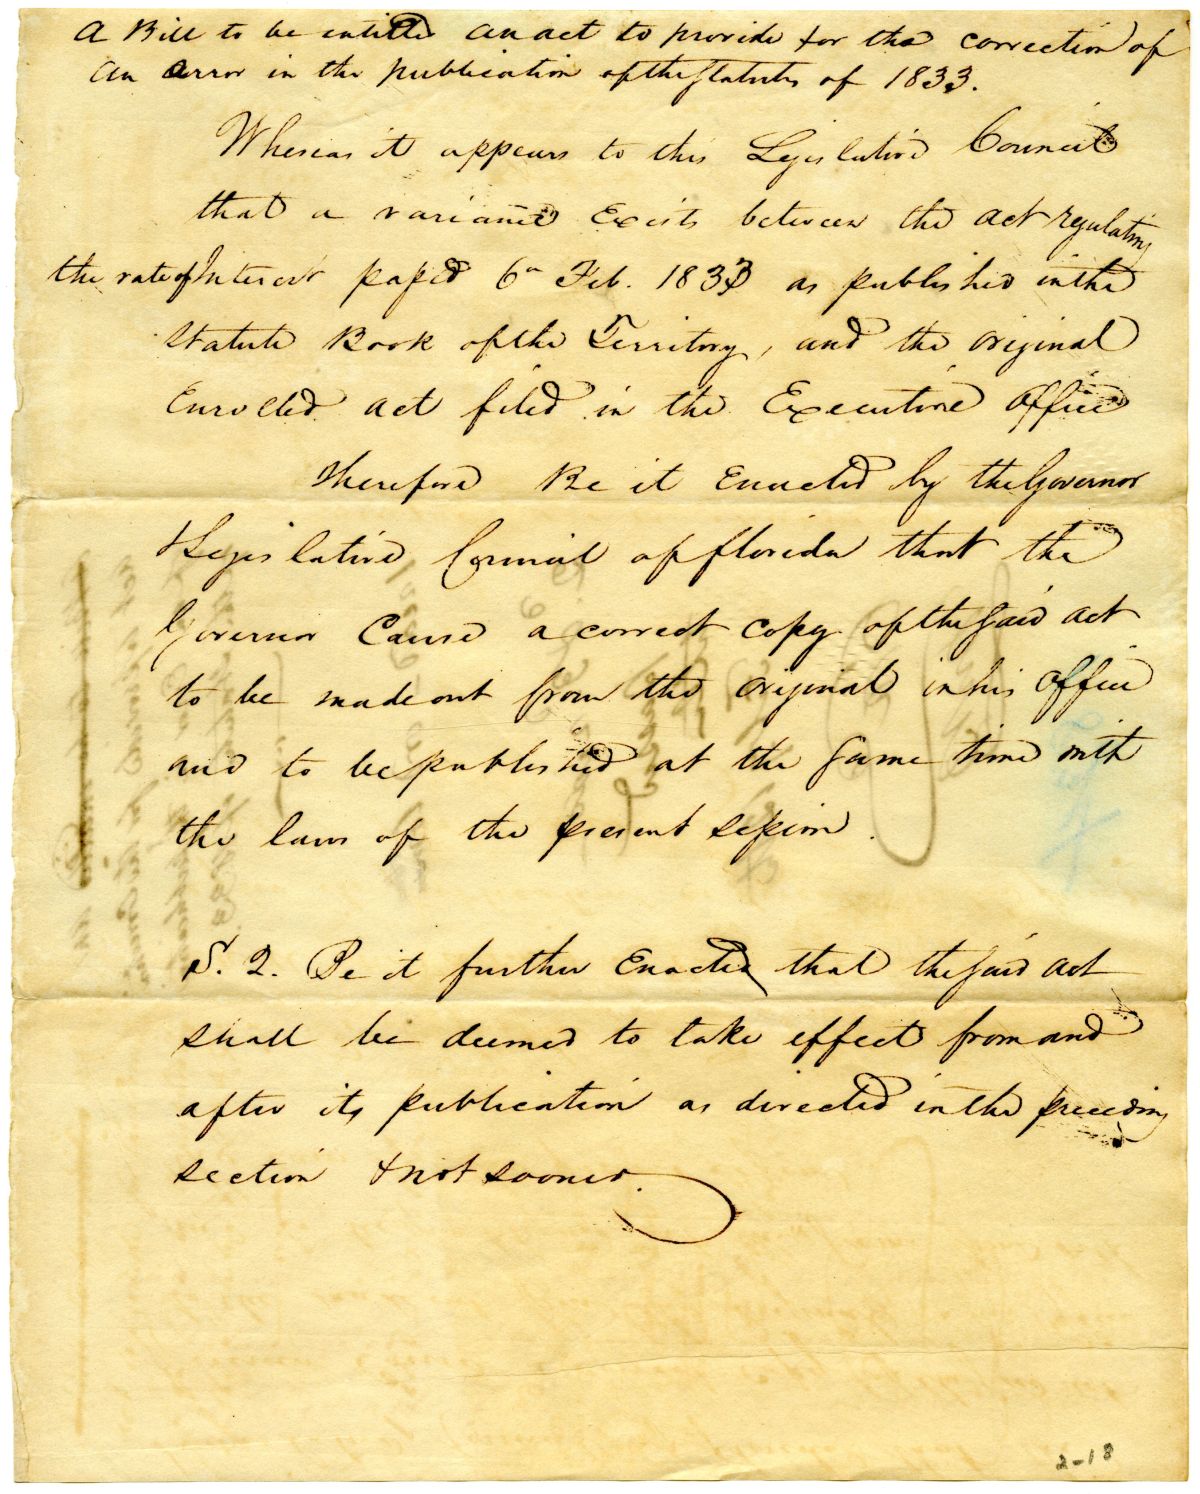 A Bill to be entitled an act to provide for the correction of
an error in the publication of the Statutes of 1833.
Whereas it appears to this Legislative Council
that a variance Exists between the act regulating
the rate of Interest passed 6th Feb. 1833 as published in the
Statute Book of the Territory, and the original
Enrolled act filed in the Executive Office
Therefore Be it Enacted by the Governor
& Legislative Council of Florida that the
Governor Cause a correct copy of the Said act
to be made out from the original in his Office
and to be published at the Same time with
the laws of the present session.
S. 2. Be it further Enacted that the Said act
shall be deemed to take effect from and
after its publication as directed in the preceding
section & not sooner.
2-18